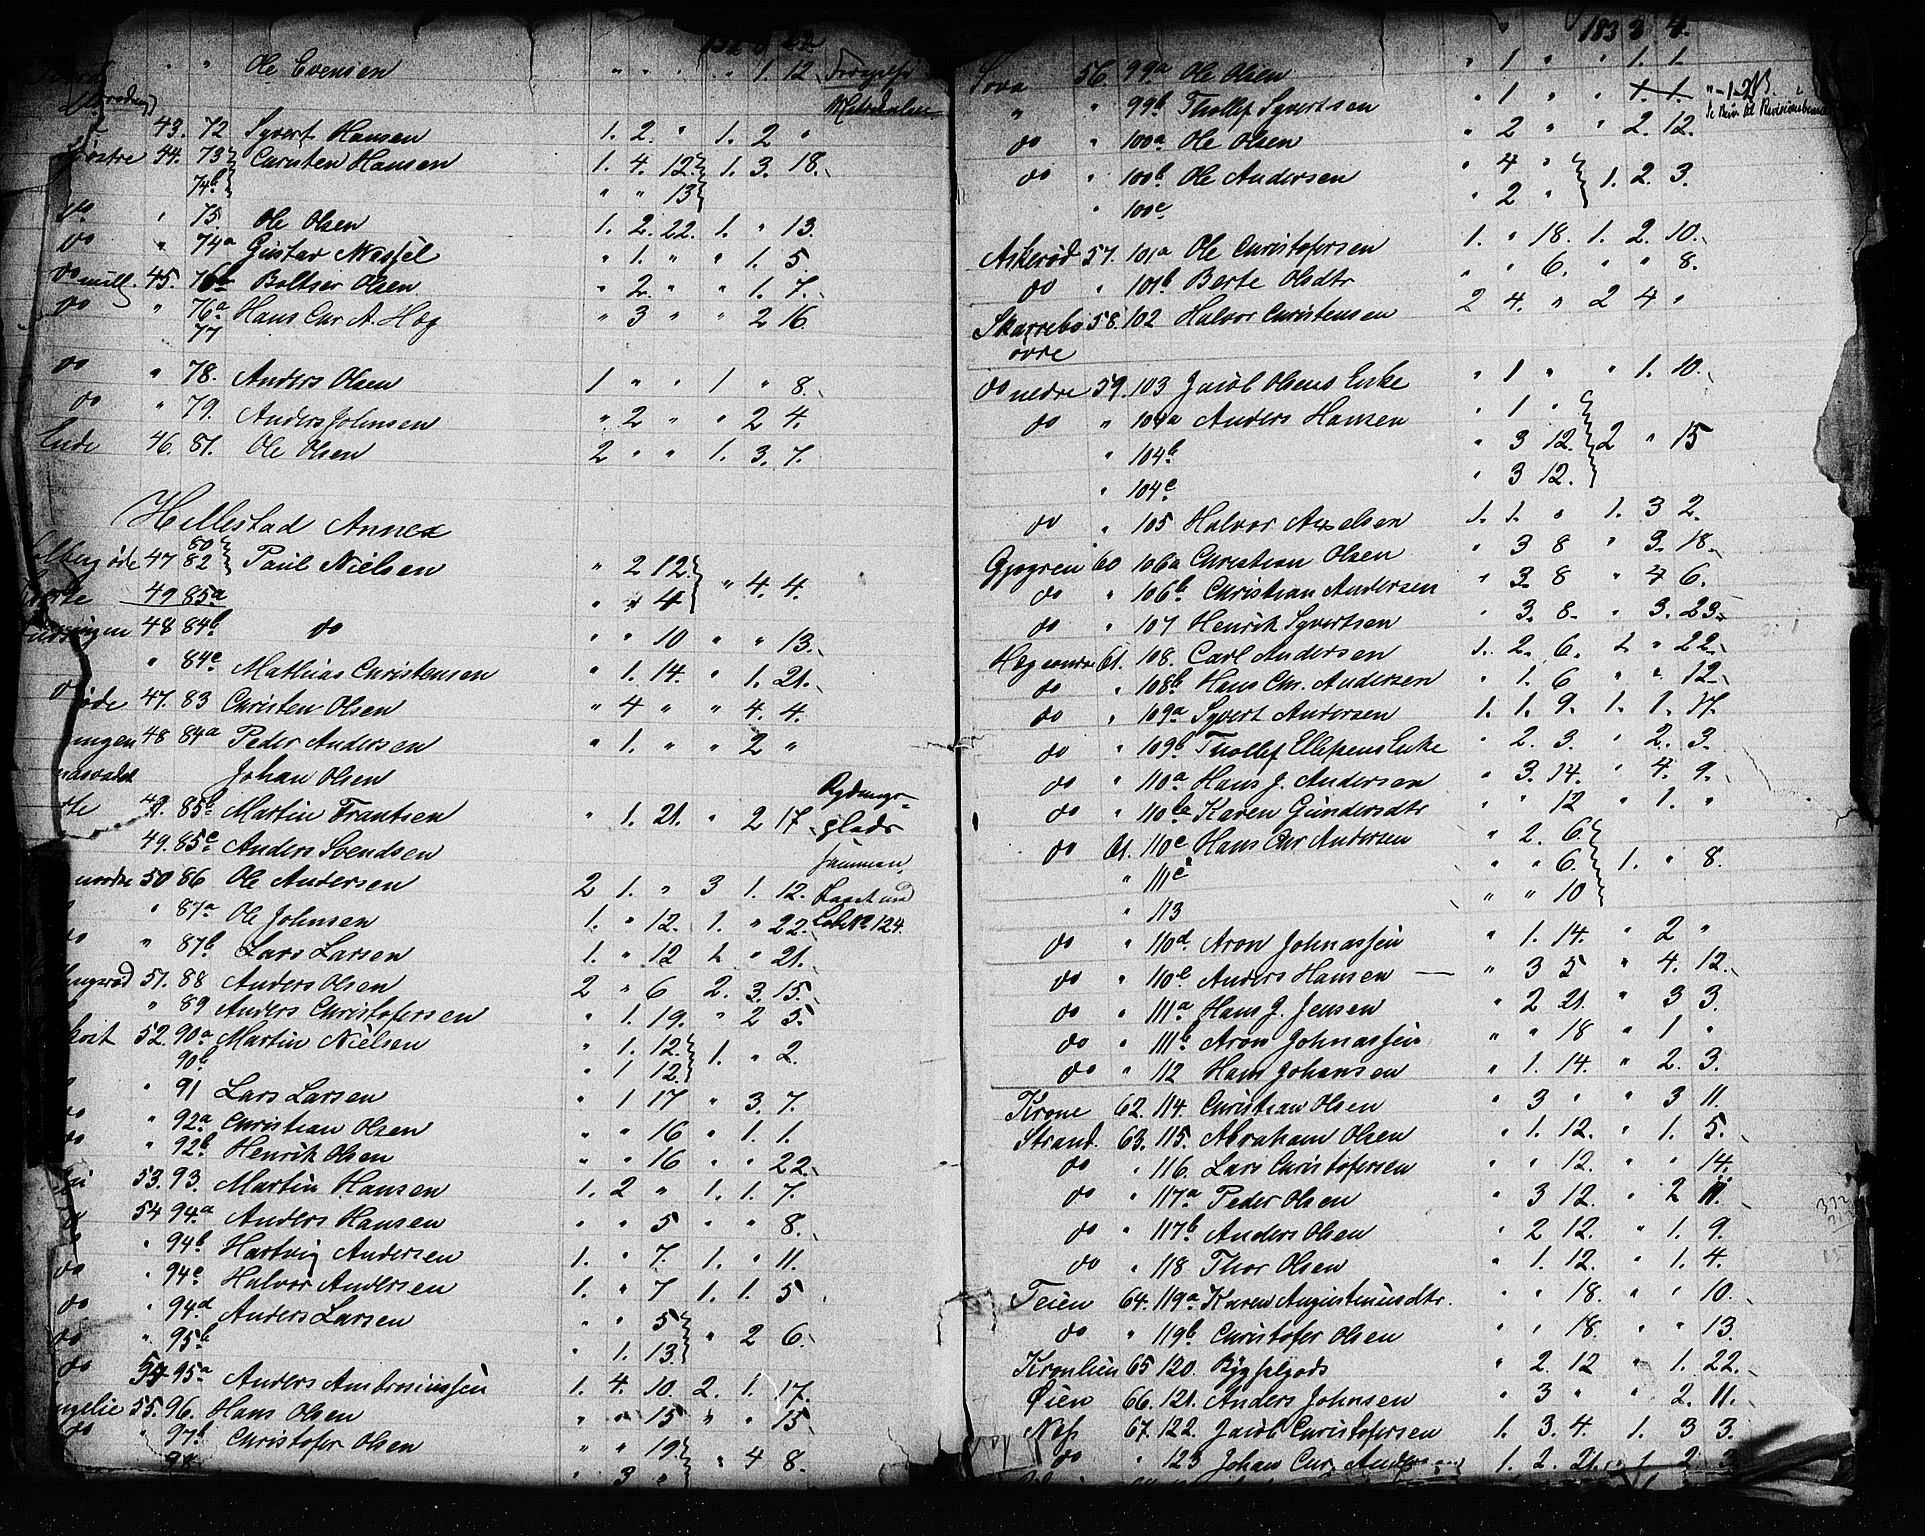 " " Ole Evensen " " " " 1. 12
43. 72 Syvert Hansen 1. 2. " 1. 2 "
44. 73 Carsten Hansen 1. 4. 12. 1. 3. 18.
74b " " 13
do " 75. Ole Olsen 1. 2. 22. 1. " 13.
do " 74a Gustav Wessel " 1. " " 1. 5
do mill. 45. 76b Boltser Olsen " 2. " " 1. 7.
do " 76a Hans Chr A. Høg " 3 " " 2 16.
77
do " 78. Anders Olsen 1 " " 1 " 8.
do " 79. Anders Johnsen " 2 " " 2 4.
Ende 46. 81. Ole Olsen 2 " " 1. 3. 7.
Hillestad Annex
80
47 82 Paul Nielsen " 2 12. " 4. 4.
49 85a " " 4
48 84b do " " 10 " " 13.
" 84c Mathias Christensen " 1. 14. " 1. 21.
47. 83 Christen Olsen " 4 " " 4. 4.
48 84a Peder Andersen " 1. " " 2 "
Johan Olsen
49. 85b Martin Frantsen " 1. 21. " 2 17.
49. 85c Anders Svendsen
50 86 Ole Andersen 2 1. " 3 1. 12.
" 87a Ole Johnsen 1. " 12. 1. " 22. 124.
do " 87b Lars Larsen 1. " 12 1. " 21.
51. 88 Anders Olsen 2 " 6 2. 3. 15.
" 89 Anders Christofersen " 1. 19. " 2 5.
52. 90a Martin Nielsen " 1. 12. 1. " 2.
90b " 1 12.
" 91 Lars Larsen " 1 17 " 3. 7.
do " 92a Christian Olsen " " 16 " 1. 1.
do " 92b Henrik Olsen " " 16 " " 22.
53. 93. Martin Hansen 1. 2 " 1. 1. 7.
54 94a Anders Hansen " " 5 " " 8.
" 94b Hartvig Andersen 1. " 7. 1. " 11.
do " 94c Halvor Andersen 1. " 7 1. 1. 5
do " 94d Anders Larsen " " 5 " 2 6.
do " 95b " 1. 13.
do 54 95a Anders Ambrosiussen 1. 4. 10. 2. 1. 17.
55. 96. Hans Olsen " " 15 " " 15
do " 97b Christofer Olsen " " 19. " 4 8.
98 " 3 "
183 3 4.
Sova 56. 99a Ole Olsen " 1 " " 1. 1.
" " 99b Thollef Syvertsen " 1 " " 1. 1. " - 1 - 23.
do " 100a Ole Olsen " 2 " " 2. 12.
do " 100b Ole Andersen " 4 " 1. 2. 3.
" 100c " 2 "
Askerød 57. 101a Ole Christofersen 1. " 18. 1. 2. 10.
do " 101b Berte Olsdtr " " 6. " " 8.
Skarrebo 58. 102 Halvor Christensen 2 4. " 2 4 "
övre
do nedre 59. 103 Jacob Olsens Enke " 1 " " 1. 10.
do " 104a Anders Hansen " 1 " 2 " 15
" 104b " 3 12.
" 104c " 3 12.
do " 105 Halvor Axelsen 1. 1. " 1. 3 2.
Gjøgren 60 106a Christian Olsen " 3 8 " 3. 18.
do " 106b Christian Andersen " 3. 8 " 4 6.
do " 107 Henrik Syvertsen " 3. 8. " 3. 23.
Høg søndre 61. 108. Carl Andersen 1. 2. 6. 1. " 22.
do " 108b Hans Chr. Andersen " 1. 6 " " 12.
do " 109a Syvert Andersen 1. 1. 9. 1. 1. 17.
do " 109b Thollef Ellefsens Enke " 2. 3. " 2. 3.
do " 110a Hans J. Andersen " 3. 14. " 4. 9.
do " 110b Karen Gundersdtr " " 12 " 1. "
do 61. 110c Hans Chr Andersen " 2. 6. 1. " 8.
" 111c " " 6.
" 113 " " 10
do " 110d. Aron Johnassen " 1. 14. " 2 "
do " 110e Anders Hansen " 3 5 " 4. 12.
do " 111a Hans J. Jensen " 2 21. " 3 3.
do " 111b Aron Johnassen " " 18 " 1 "
do " 112 Hans Johansen " 1. 14. " 2. 3.
Krone 62. 114. Christian Olsen " 3 " " 3 11.
Strand. 63. 115. Abraham Olsen " 1. 12. " 1. 5.
do " 116. Lars Christofersen " " 12. " " 14.
do " 117a Peder Olsen " 3 12. " 2 11.
do " 117b Anders Olsen " 2 12. " 1. 9.
do " 118 Thor Olsen " 1. 12. " 1. 4.
Teien 64. 119a Karen Augustinusdtr. " " 18. " " 10.
do " 119b Christofer Olsen " " 18. " " 13.
Kronlien 65 120. Bygselgods " 2. 12 " 1. 22.
Øien 66. 121. Anders Johnsen " 3 " " 2. 11.
Næss 67. 122. Jacob Christofersen 1. 3. 4. 1. 3 3.
do " 123 Johan Chr. Andersen 1. 2. 21. 1 2. 3